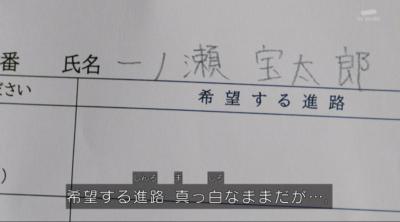 番 氏名 一ノ瀬 宝太郎
ださい 希望する進路
)
しんろ ま しろ
希望する進路 真っ白なままだが…